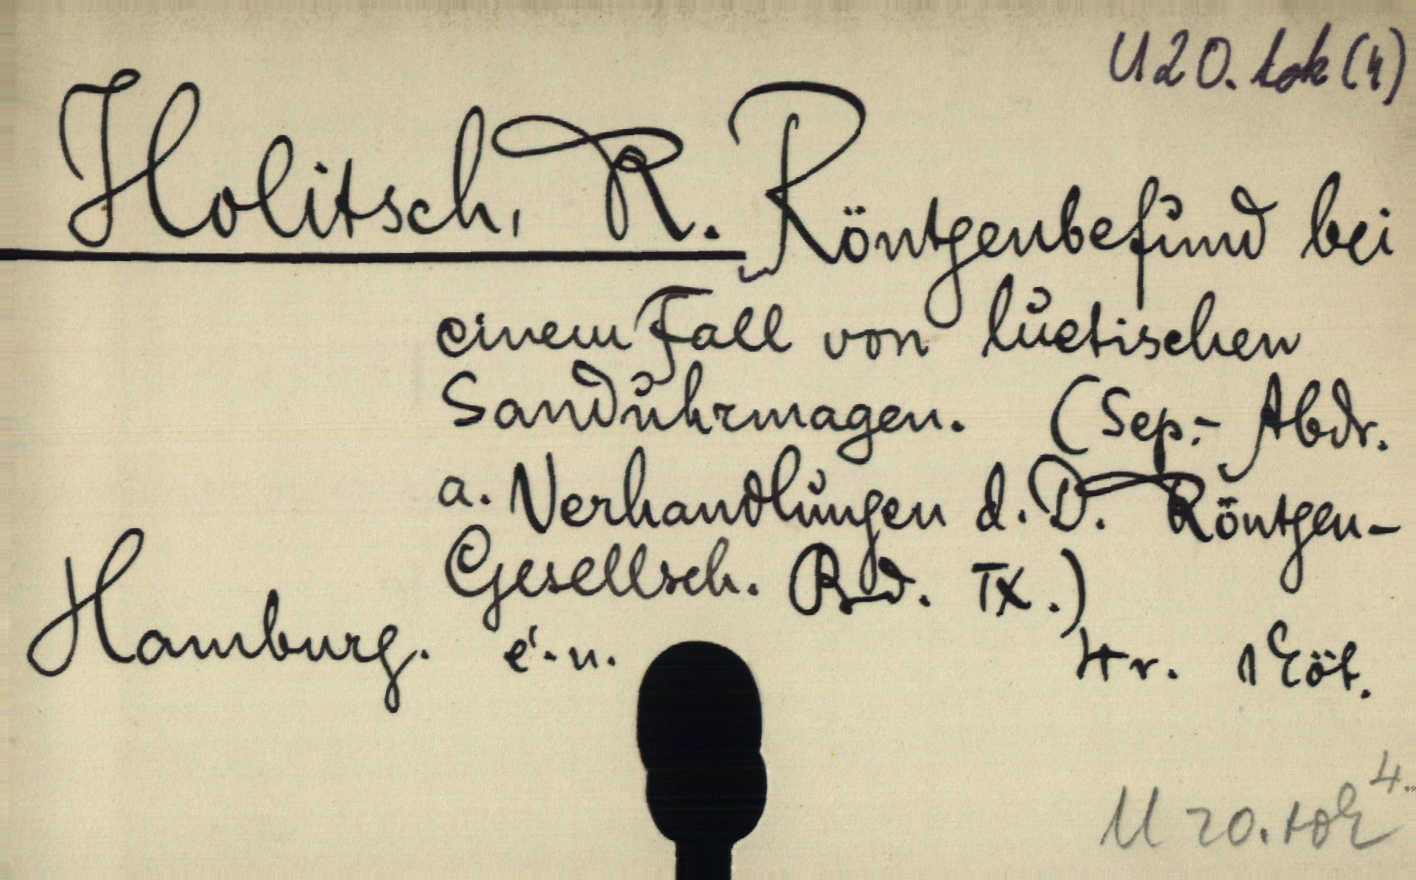 U20. tok (4)
Holitsch, R. Röntgenbefund bei
einem Fall von luetischen
Sanduhrmagen. (Sep.- Abdr.
a. Verhandlungen d. D. Röntgen-
Gesellsch. Bd. IX.)
Hamburg. é. n. 4r. 1 köt.
U 20. tok 4.